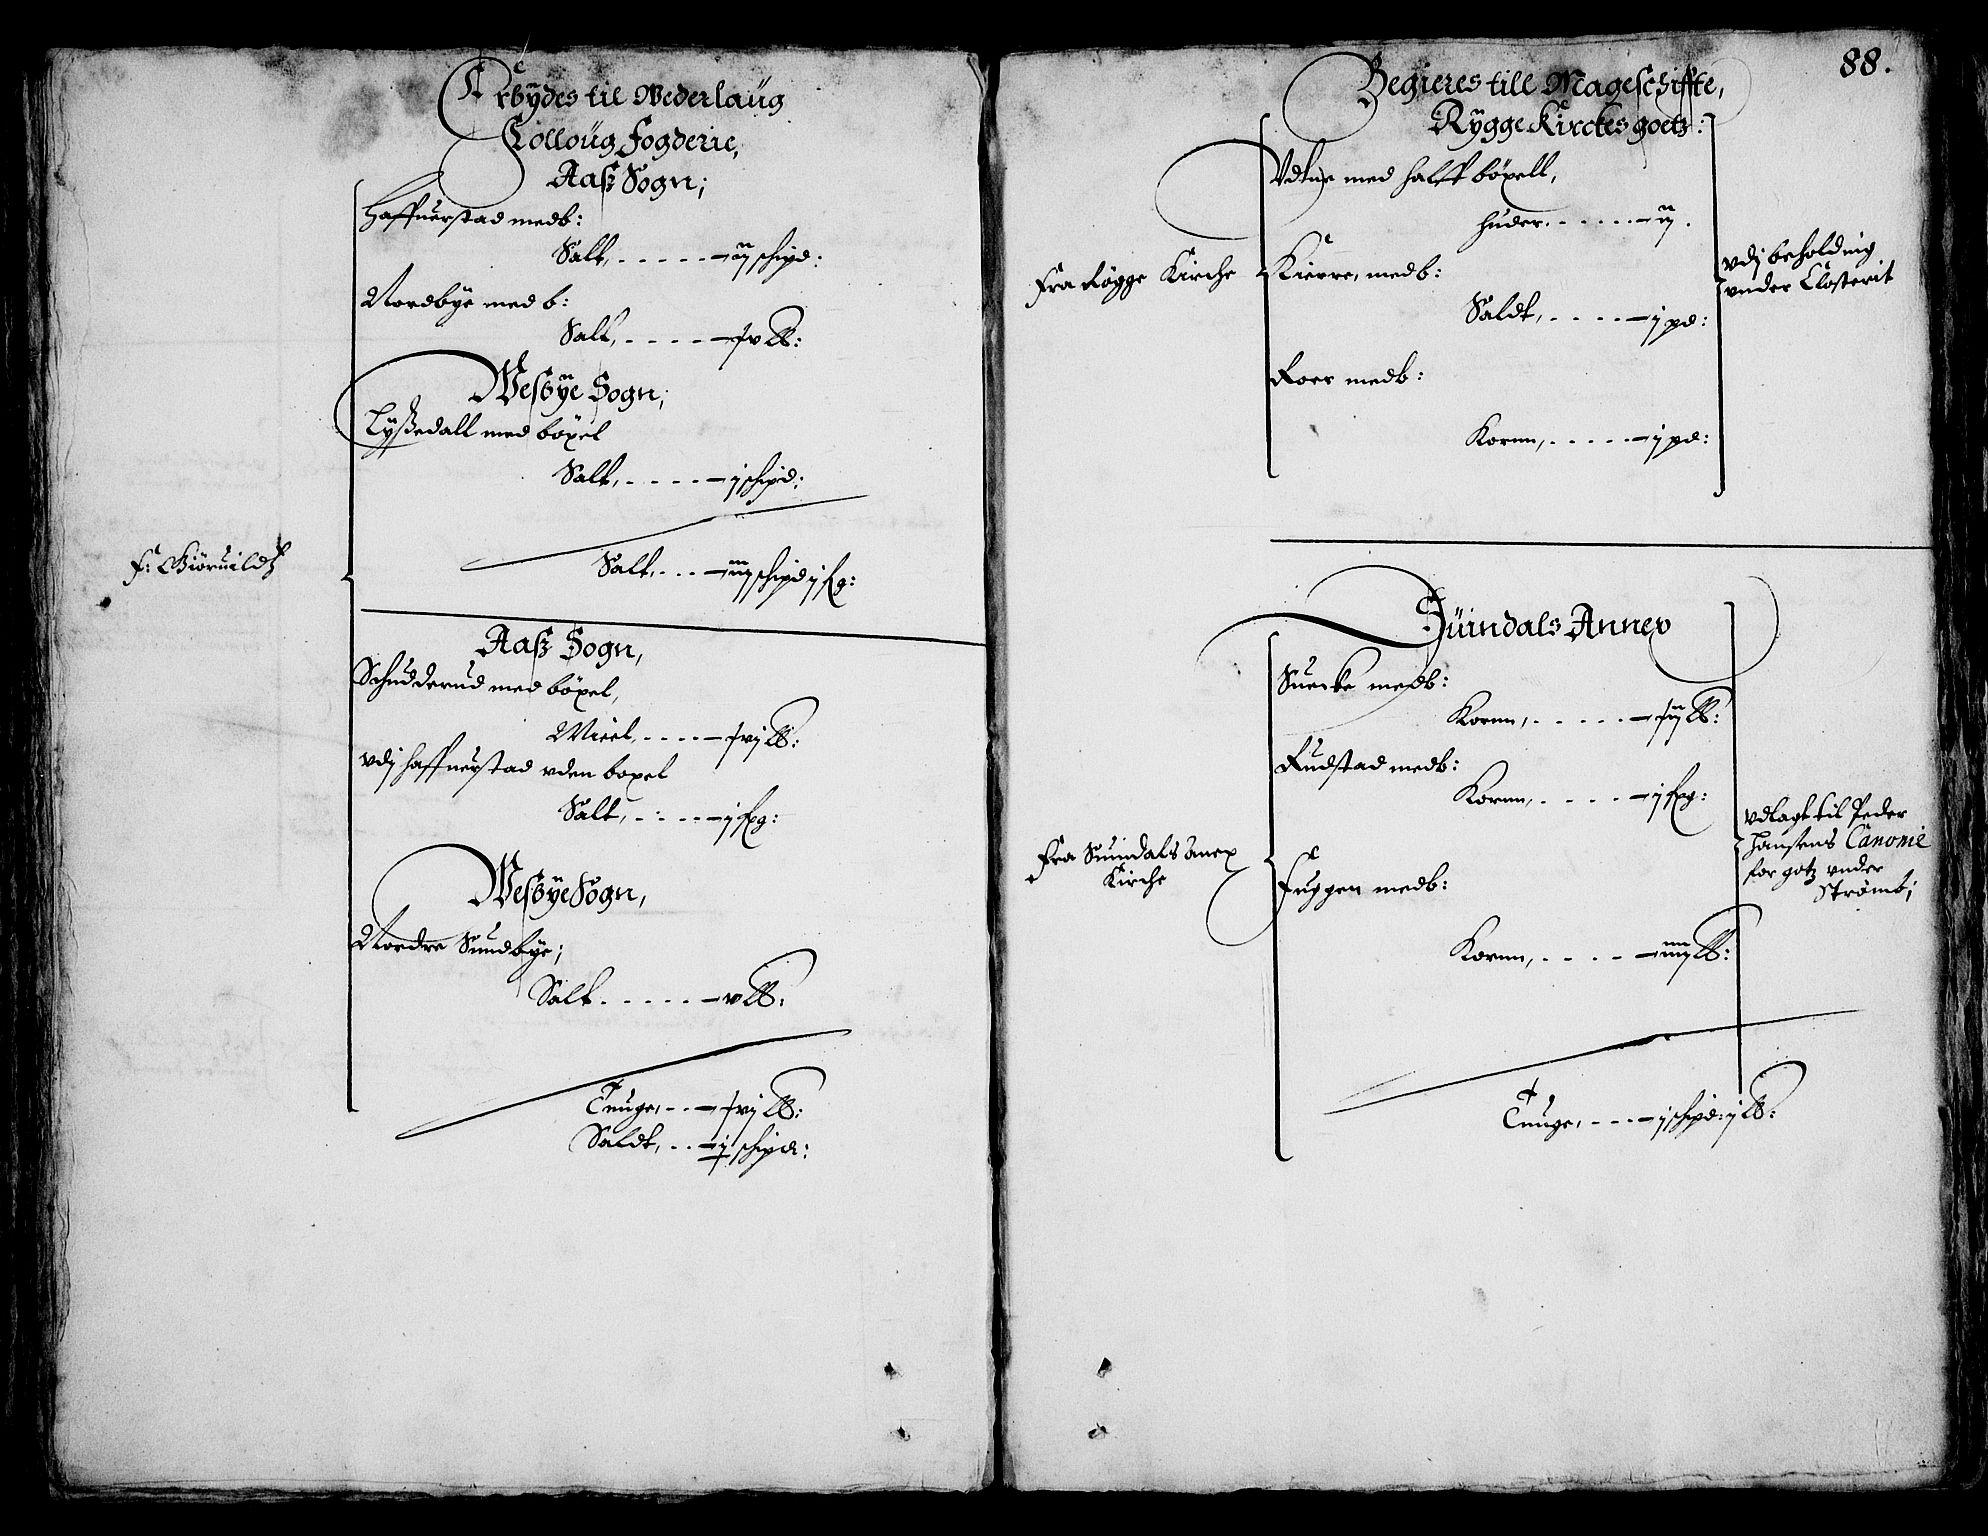 Erbÿdes til Wederlaüg
Folloüg Fogderie,
Aasz Sogn;
Haffnerstad medb:
Salt, . . . . . - ij schipd:
Nordbye med b:
Salt, . . . . . - xv ℔:
Wesbÿe Sogn;
Lÿszedall med böxel
Salt, . . . . - j schipd:
Salt, . . . - iij schipd j fg:
f: Giöruildtz
Aasz Sogn,
Schudderud med böxel,
Miell, . . . . - xvj ℔:
vdj haffnerstad vden boxel
Salt, . . . . - j fpg:
Wesbÿe Sogn,
Nordre Sundbÿe;
Salt . . . . . - v ℔:
Tunge, . . - xvj ℔:
Saldt, . . - j schipd:
88.
Begieres till Mageschiffte,
Rÿgge Kirckes goetz:
Vdtne med halff böxell,
huder, . . . . . - ij .
Fra Rögge Kirche
Kierre, medb:
Saldt, . . . . - j pd:
Roer medb:
Kornn, . . . . . - j pd:
vdj beholding
vnder Closterit
Süindals Annex
Suecke medb:
Kornn, . . . . . - xij ℔:
Rudstad medb:
Kornn, . . . . - j fpg:
Fra Suindals anex
Kirche
Fuggen medb:
Kornn, . . . . - iiij ℔:
vdlagt til Peder
Hansens Canonie
for gotz vnder
Strömb;
Tunge, . . . - j schipd: j ℔: